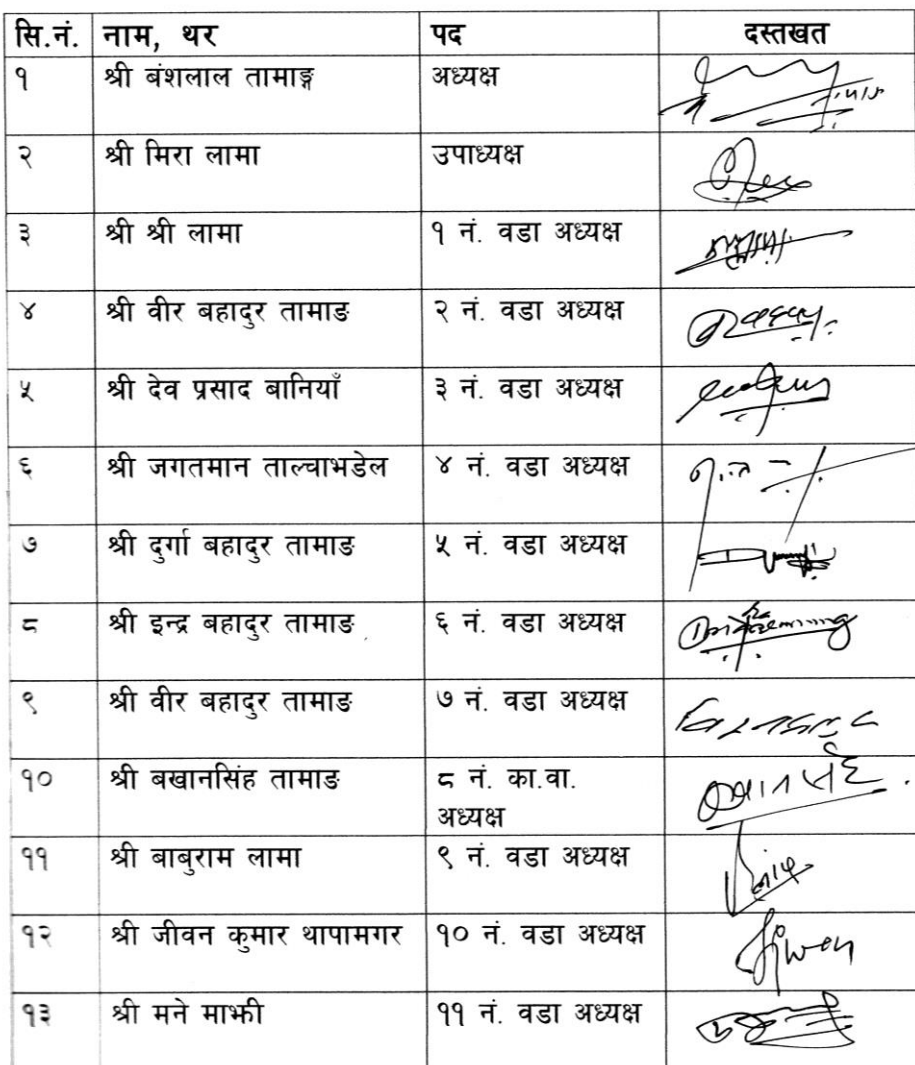 सि.नं. नाम, थर पद दस्तखत
१ श्री बंशलाल तामाङ्ग अध्यक्ष
२ श्री मिरा लामा उपाध्यक्ष
३ श्री श्री लामा १ नं. वडा अध्यक्ष
४ श्री वीर बहादुर तामाङ २ नं. वडा अध्यक्ष
५ श्री देव प्रसाद बानियाँ ३ नं. वडा अध्यक्ष
६ श्री जगतमान ताल्चाभडेल ४ नं. वडा अध्यक्ष
७ श्री दुर्गा बहादुर तामाङ ५ नं. वडा अध्यक्ष
८ श्री इन्द्र बहादुर तामाङ ६ नं. वडा अध्यक्ष
९ श्री वीर बहादुर तामाङ ७ नं. वडा अध्यक्ष
१० श्री बखानसिंह तामाङ ८ नं. का.वा.
अध्यक्ष
११ श्री बाबुराम लामा ९ नं. वडा अध्यक्ष
१२ श्री जीवन कुमार थापामगर १० नं. वडा अध्यक्ष Jiwan
१३ श्री मने माझी ११ नं. वडा अध्यक्ष